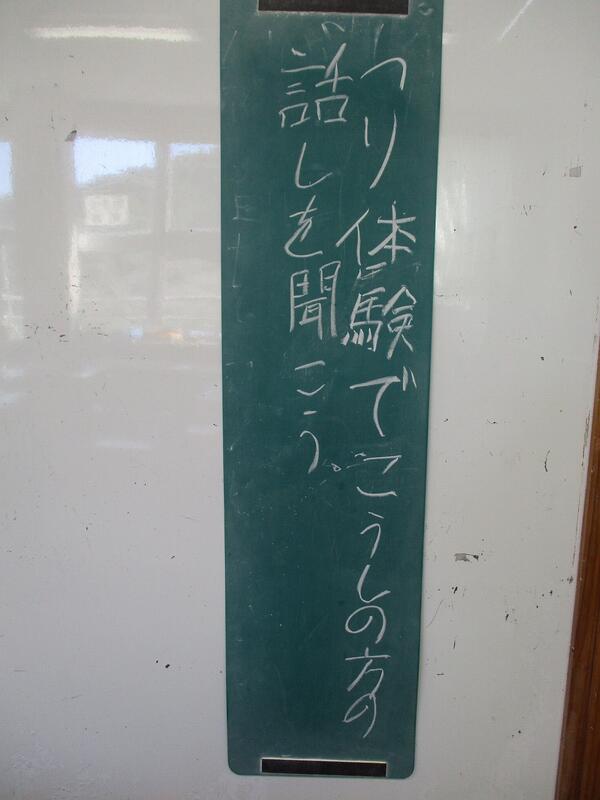 つり体験でこうしの方の
話しを聞こう。